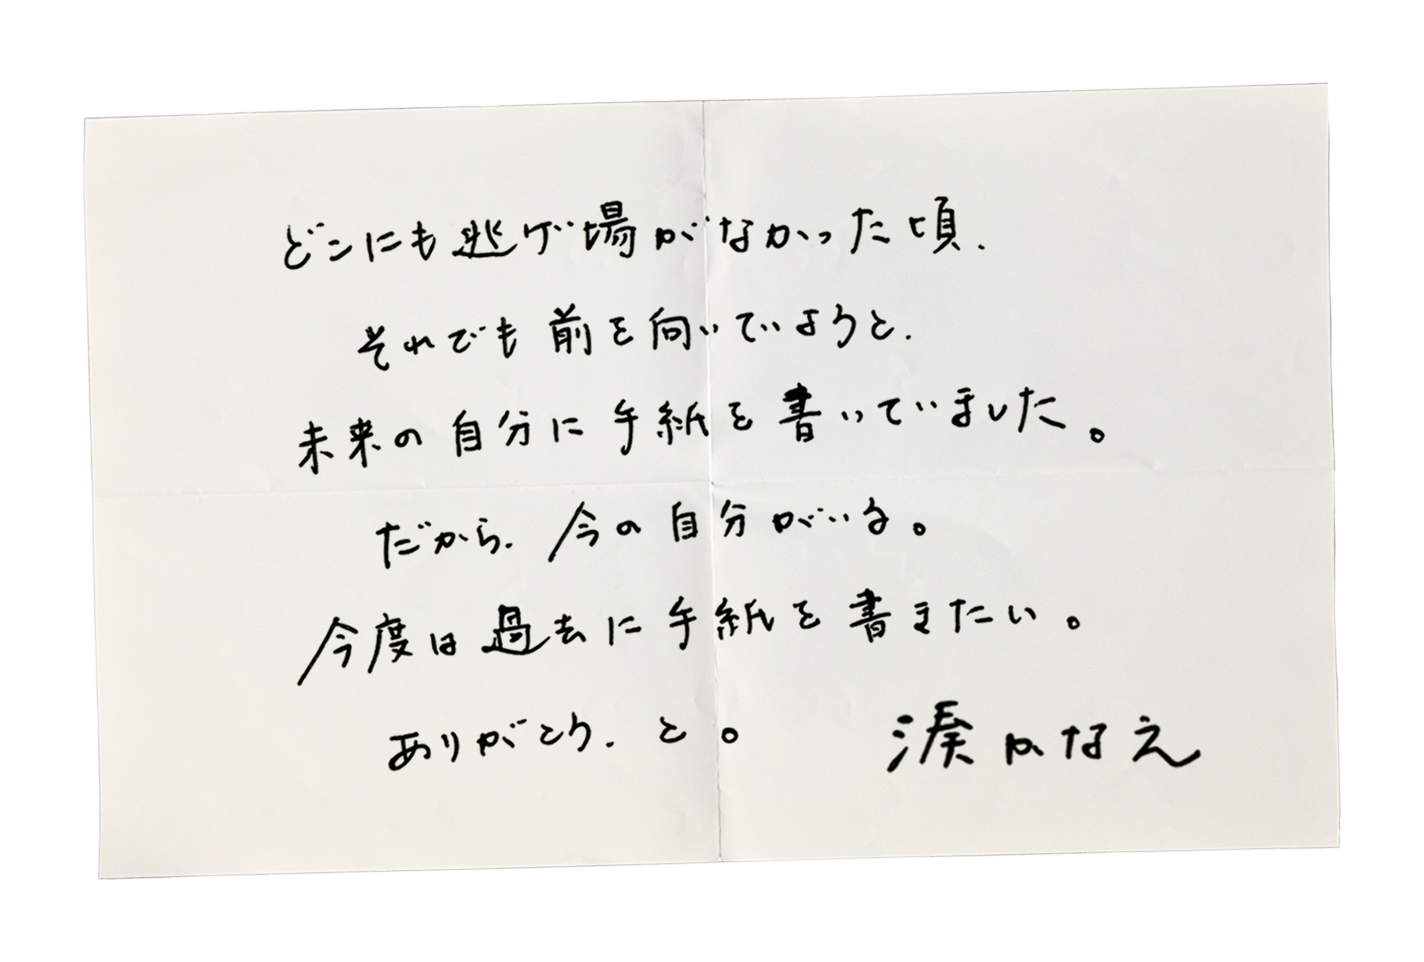 どこにも逃げ場がなかった頃、
それでも前を向いていようと、
未来の自分に手紙を書いていました。
だから、今の自分がいる。
今度は過去に手紙を書きたい。
ありがとう、と。 湊かなえ